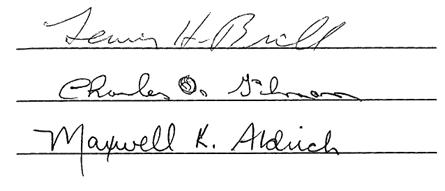 Lewis H. Brill
Charles O. Gilman
Maxwell K. Aldrich